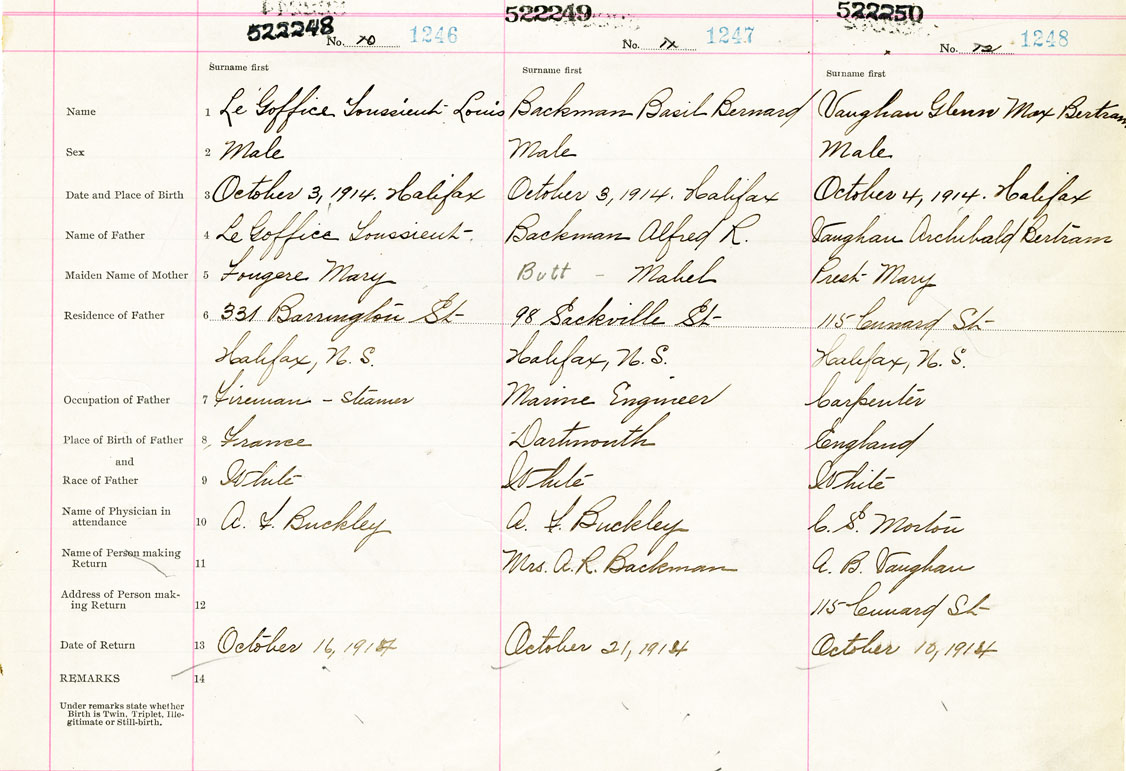 522248 522249 522250
No. 70 1246 No. 71 1247 No. 72 1248
Surname first Surname first Surname first
Name 1 Le Goffice Toussient Louis Backman Basil Bernard Vaughan Glenn Max Bertram
Sex 2 Male Male Male
Date and Place of Birth 3 October 3, 1914. Halifax October 3, 1914. Halifax October 4, 1914. Halifax
Name of Father 4 Le Goffice Toussient. Backman Alfred R. Vaughan Archibald Bertram
Maiden Name of Mother 5 Fougere Mary Butt - Mabel Prest Mary
Residence of Father 6 331 Barrington St 98 Sackville St 115 Cunard St
Halifax, N.S. Halifax, N.S. Halifax, N.S.
Occupation of Father 7 Fireman - Steamer Marine Engineer Carpenter
Place of Birth of Father 8 France Dartmouth England
and
Race of Father 9 White White White
Name of Physician in
attendance 10 A. F. Buckley A. F. Buckley C. S. Morton
Name of Person making
Return 11 Mrs. A. R. Backman A. B. Vaughan
Address of Person mak-
ing Return 12 115 Cunard St
Date of Return 13 October 16, 1914 October 21, 1914 October 10, 1914
REMARKS 14
Under remarks state whether
Birth is Twin, Triplet, Ille-
gitimate or Still-birth.